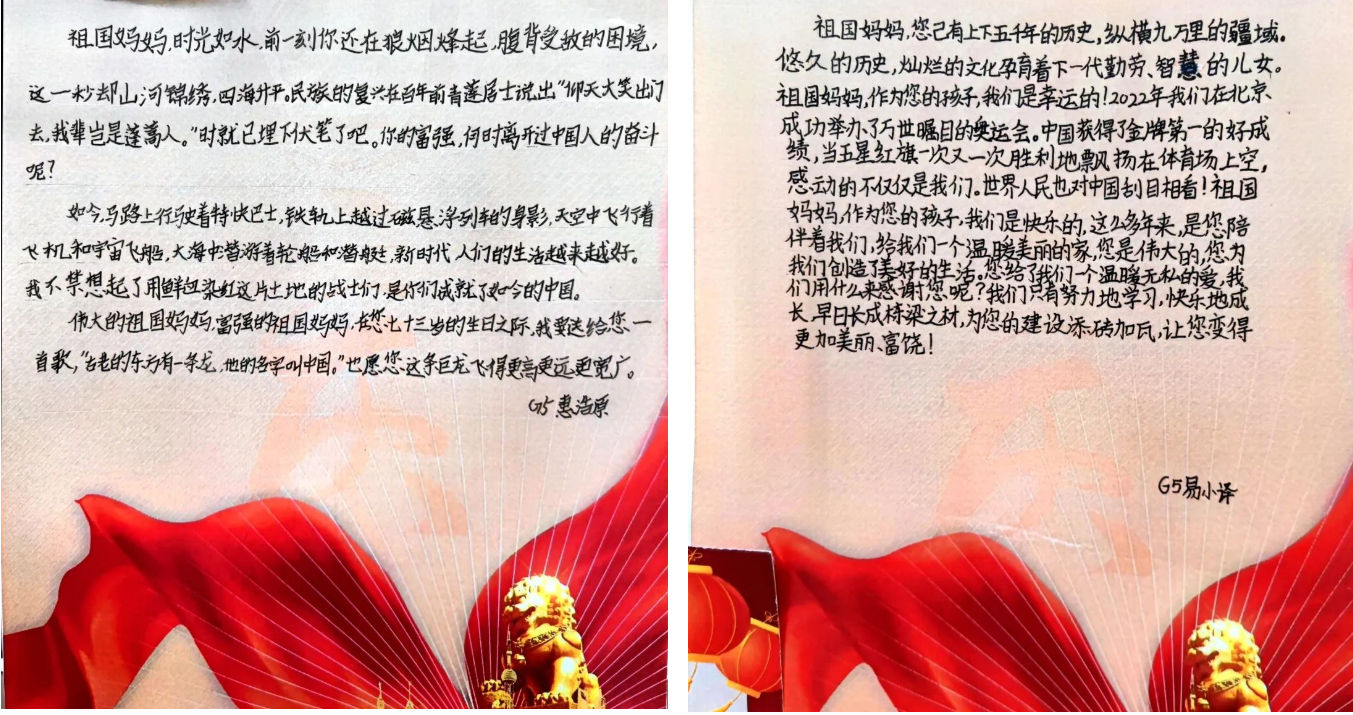 祖国妈妈,时光如水,前一刻你还在狼烟烽起,腹背受敌的困境,
这一秒却山河锦绣,四海升平。民族的复兴在百年前青莲居士说出“仰天大笑出门
去,我辈岂是蓬蒿人。”时就已埋下伏笔了吧。你的富强,何时离开过中国人的奋斗
呢?
如今,马路上行驶着特快巴士,铁轨上越过磁悬浮列车的身影,天空中飞行着
飞机和宇宙飞船,大海中潜游着轮船和潜艇,新时代,人们的生活越来越好。
我不禁想起了用鲜血染红这片土地的战士们,是你们成就了如今的中国。
伟大的祖国妈妈,富强的祖国妈妈,在您七十三岁的生日之际,我要送给您一
首歌,“古老的东方有一条龙,他的名字叫中国。”也愿您这条巨龙飞得更高更远更宽广。
G5惠浩原
祖国妈妈,您已有上下五千年的历史,纵横九万里的疆域。
悠久的历史,灿烂的文化孕育着下一代勤劳、智慧的儿女。
祖国妈妈,作为您的孩子,我们是幸运的!2022年我们在北京
成功举办了万世瞩目的奥运会。中国获得了金牌第一的好成
绩,当五星红旗一次又一次胜利地飘扬在体育场上空,
感动的不仅仅是我们。世界人民也对中国刮目相看!祖国
妈妈,作为您的孩子,我们是快乐的,这么多年来,是您陪
伴着我们,给我们一个温暖美丽的家,您是伟大的,您为
我们创造了美好的生活。您给了我们一个温暖无私的爱,我
们用什么来感谢您呢?我们只有努力地学习,快乐地成
长,早日长成栋梁之材,为您的建设添砖加瓦,让您变得
更加美丽、富饶!
G5易小译